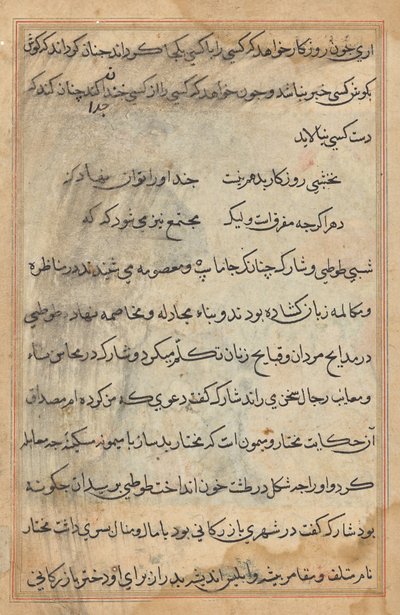 اری چون روزکار خواهد که کسی را با کسی یکجا کرداند چنان کرداند که کوش
بکوش کسی خبر نباشد و چون خواهد که کسی را از کسی جدا کند چنان کند که
جدا
دست کسی نیالاید
نخشبی روزکار بدهریست چند او را توان نهاد که
دهر اکرچه مفرق است ولیک مجتمع نیز می شود که که
شبی طوطی و شارک چنانک جاماسپ و معصومه می شنیدند در مناظره
و مکالمه زبان کشاده بودند و بناء مجادله و مخاصمه نهاده طوطی
در مدایح مردان و قبایح زنان تکلم میکرد و شارک در محاسن نساء
و معایب رجال سخن می راند شارک کفت دعوی که من کرده ام مصداق
آن حکایت مختار و میمون است که مختار بد ساز با میمونه سکینه چه معامله
کرد و او را چه شکل در طشت خون انداخت طوطی پرسید آن چکونه
بود شارک کفت در شهری بازرکانی بود با مال و منال پسری داشت مختار
نام متلف و مقامر پیشه و ابلیس اندیشه پدر آن برای او دختر بازرکانی